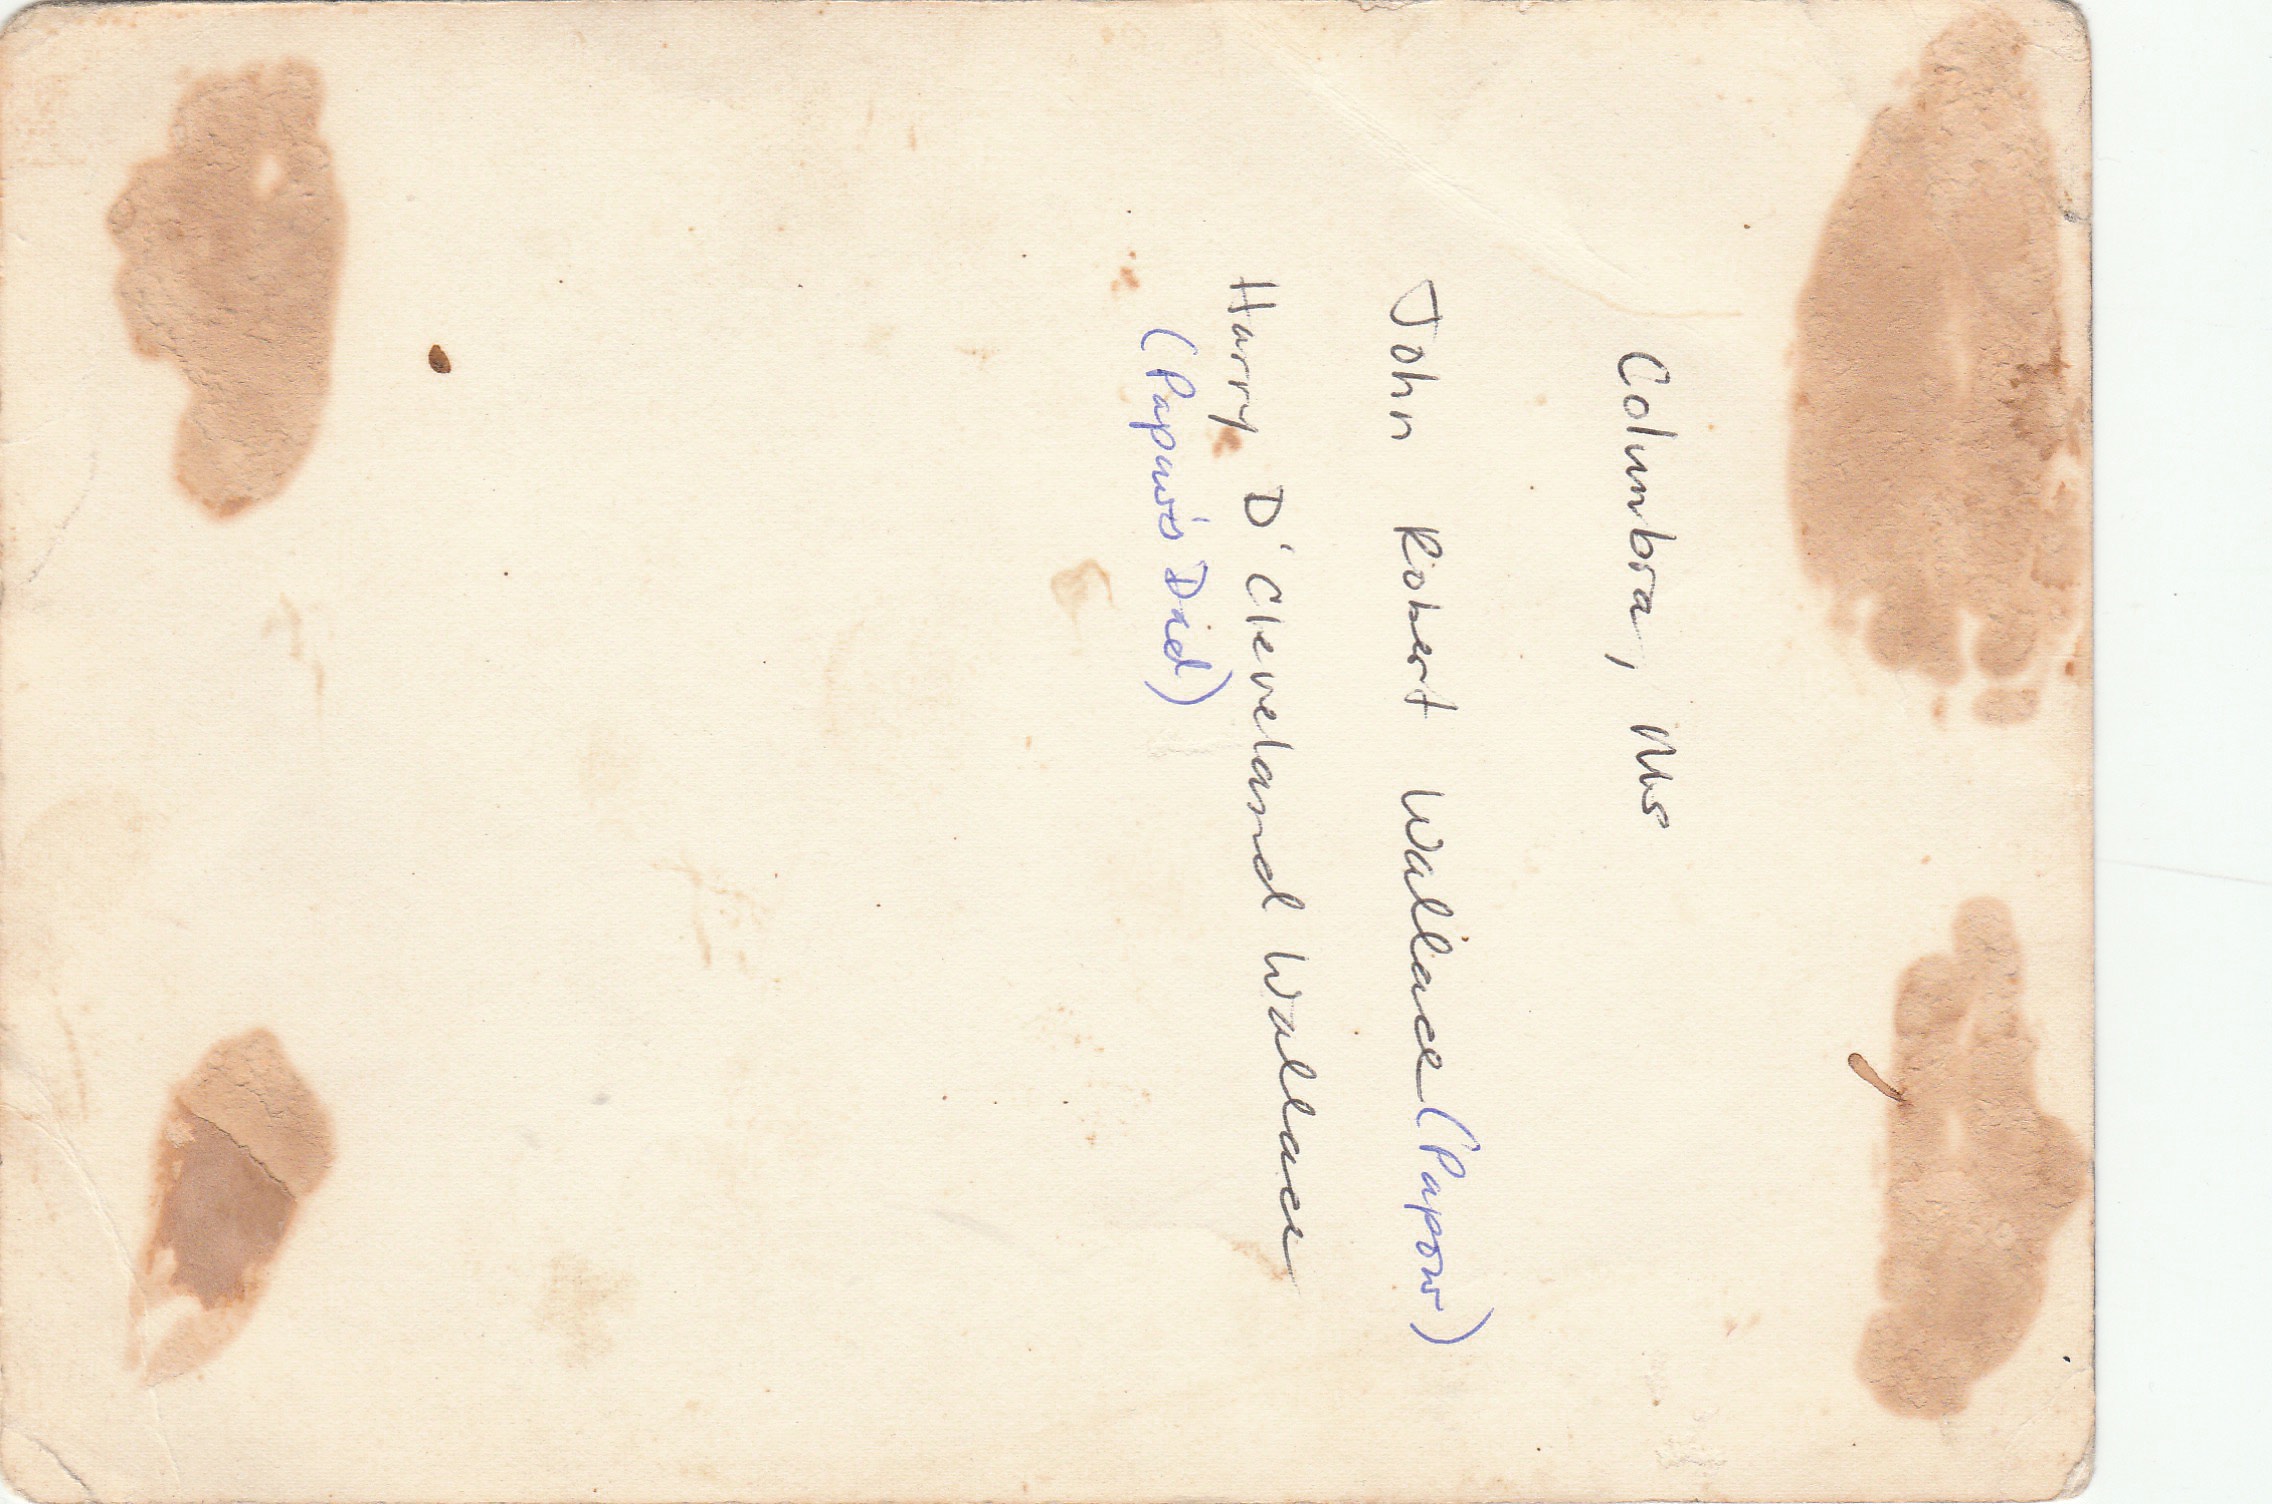 Columbia, Ms
John Robert Wallace (Papaw)
Harry D' Cleveland Wallace
(Papaw's Dad)